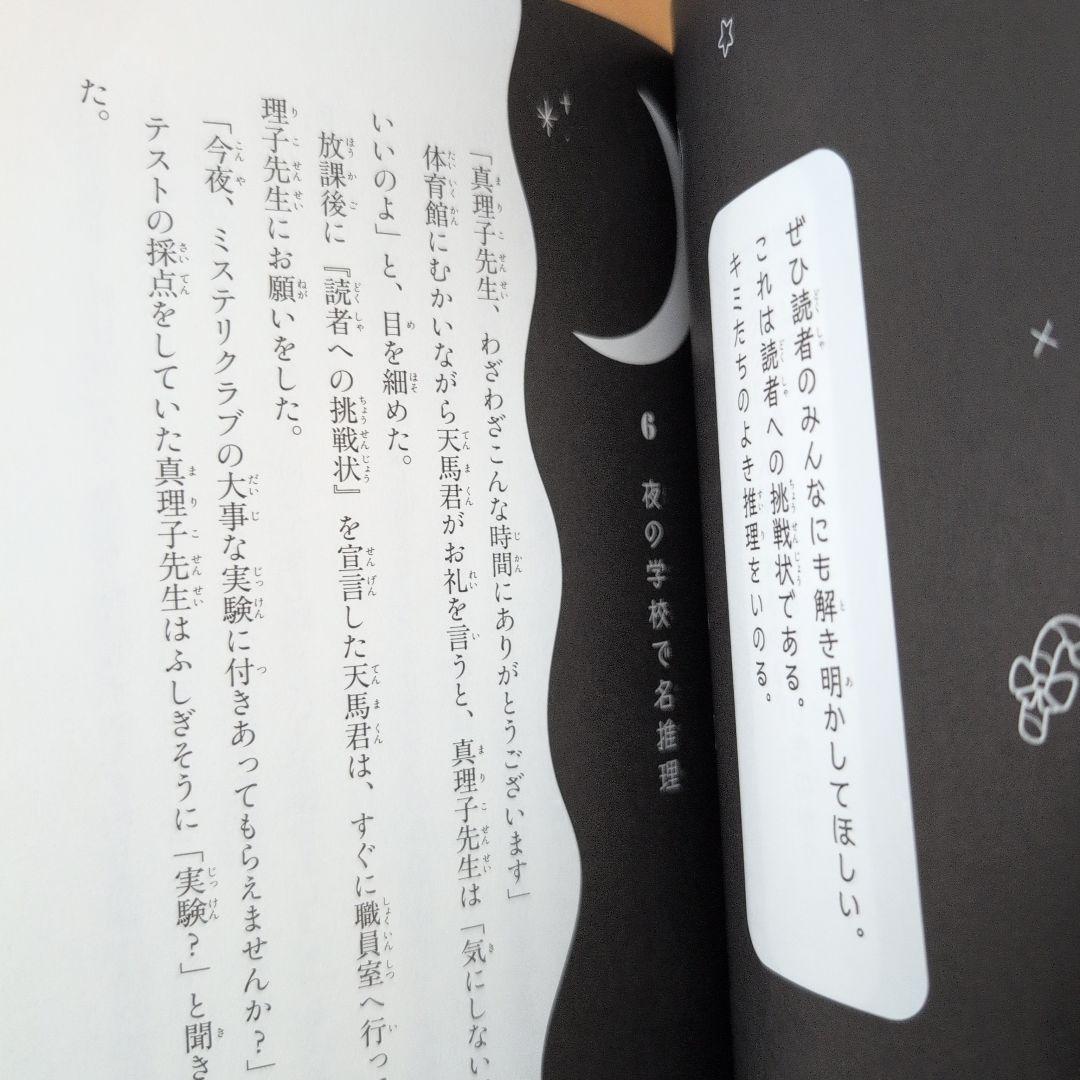 ぜひ読者のみんなにも解き明かしてほしい。
これは読者への挑戦状である。
キミたちのよき推理をいのる。
6 夜の学校で名推理
「真理子先生、わざわざこんな時間にありがとうございます」
体育館にむかいながら天馬君がお礼を言うと、真理子先生は「気にしない
いいのよ」と、目を細めた。
放課後に『読者への挑戦状』を宣言した天馬君は、すぐに職員室へ行っ
理子先生にお願いをした。
「今夜、ミステリクラブの大事な実験に付きあってもらえませんか？」
テストの採点をしていた真理子先生はふしぎそうに「実験？」と聞き
た。